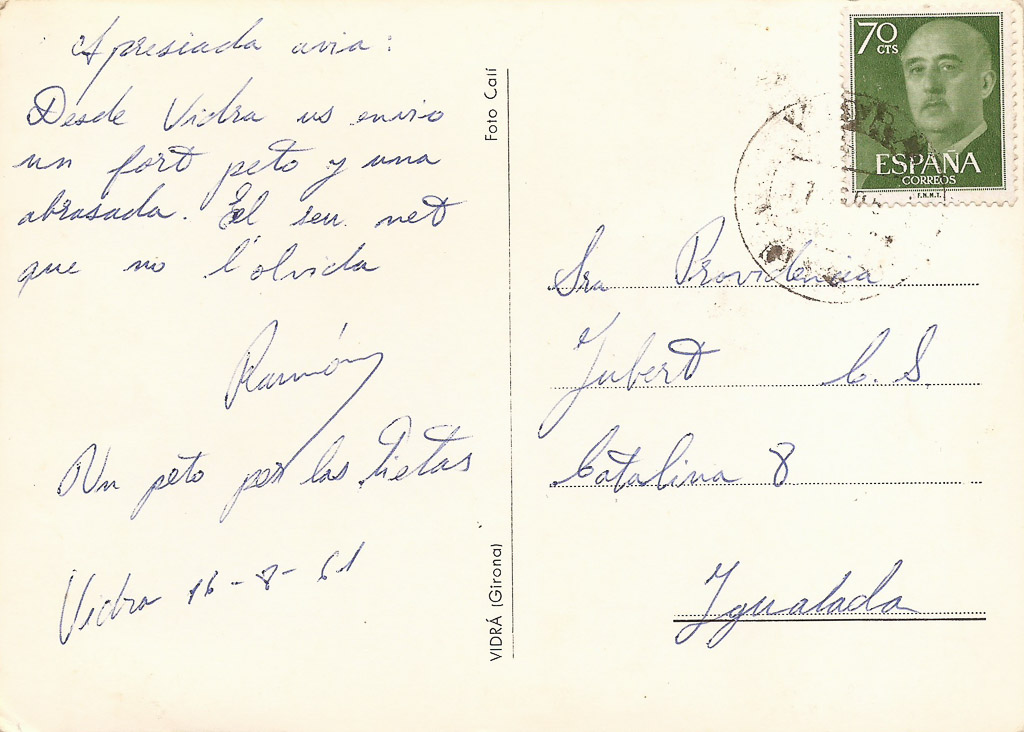 Apresiada avia:
Desde Vidra us enviro
un fort peto y una
abrasada. El seu net
que no l'olvida
Ramón
Un peto per las Tietas
Vidra 16-8-61
Foto Calí
VIDRÁ (Girona)
70
CTS
ESPAÑA
CORREOS
F.N.M.T.
Sra Providencia
Jubert C. S.
Catalina 8
Igualada